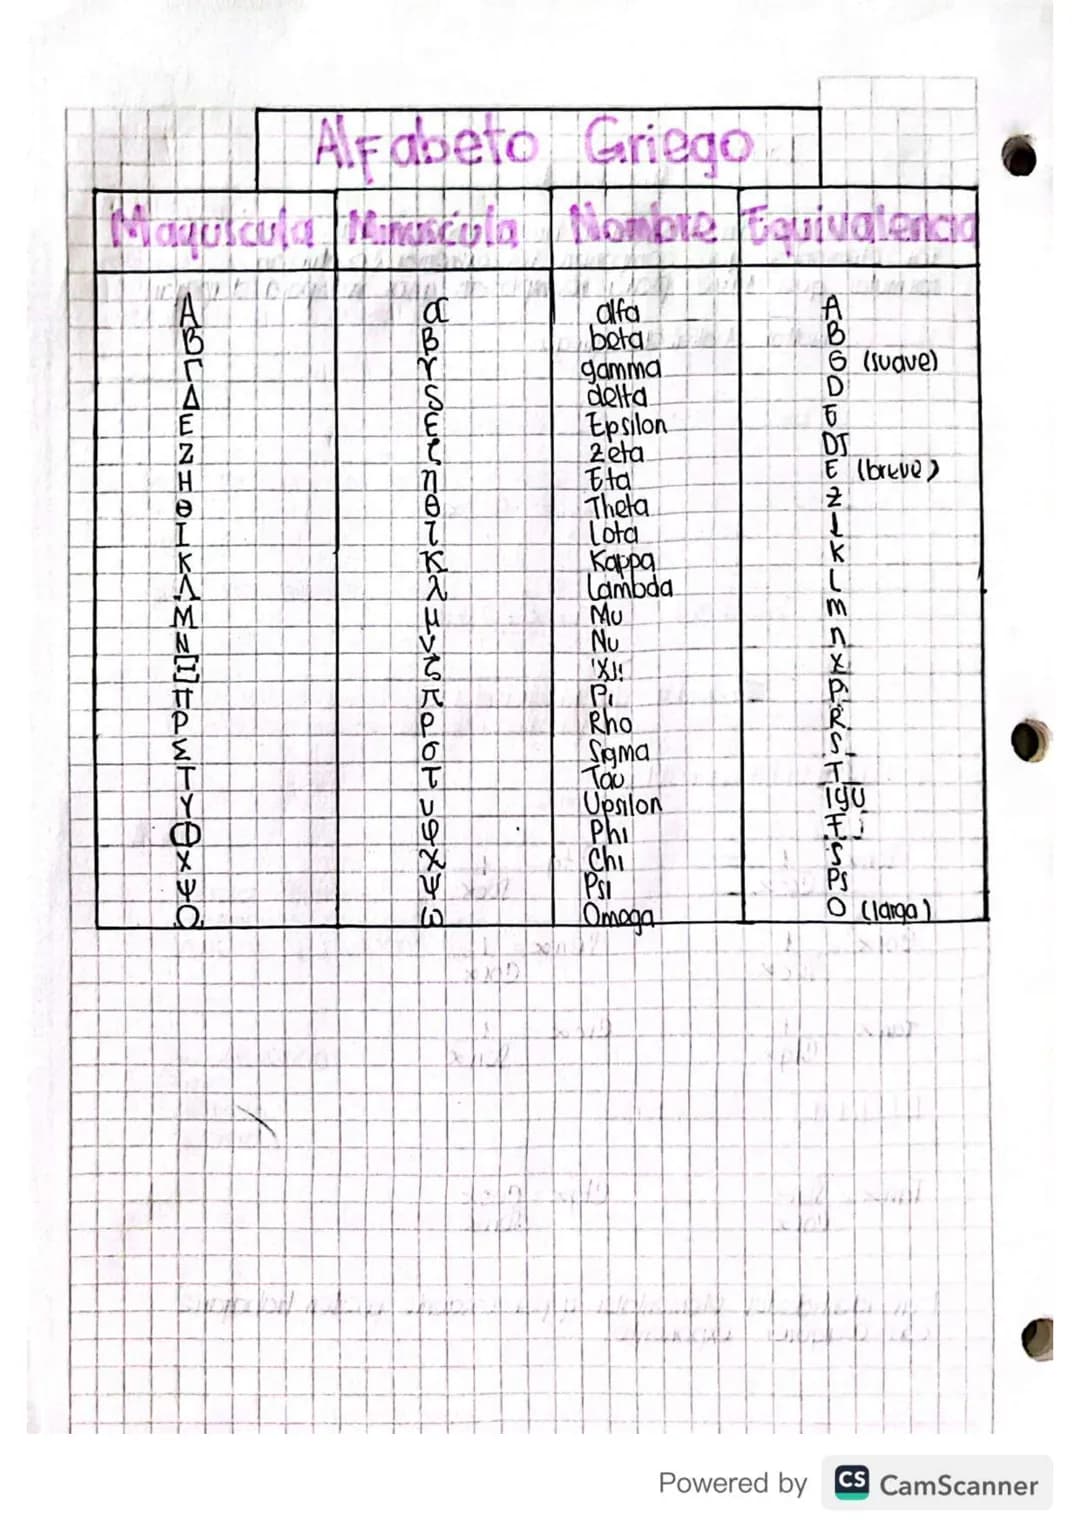 Alfabeto Griego
Mayuscula Minuscúla Nombre Equivalencia
Α α alfa A
Β β beta B
Γ γ gamma G (suave)
Δ δ delta D
Ε ε Epsilon E
Ζ ζ zeta DS
Η η Eta E (breve)
Θ θ Theta Z
Ι ι Iota I
Κ κ Kappa K
Λ λ Lambda L
Μ μ Mu m
Ν ν Nu n
Ξ ξ 'Xi! X
Π π Pi P
Ρ ρ Rho R
Σ σ Sigma S
Τ τ Tau T
Υ υ Upsilon IyU
Φ φ Phi F
Χ χ Chi S
Ψ ψ Psi Ps
Ω ω Omega O (larga)
Powered by CS CamScanner